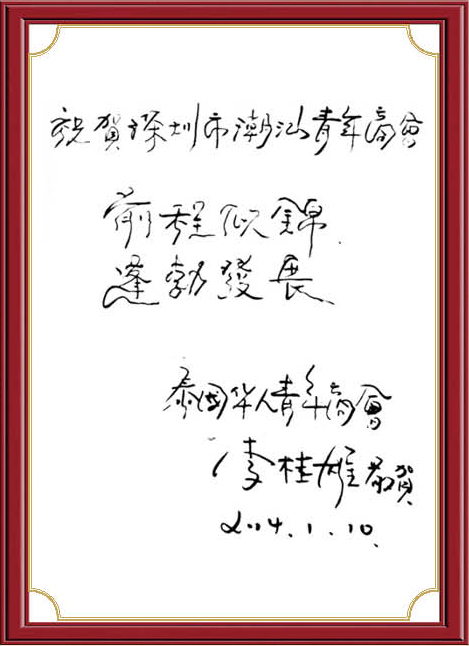 祝賀深圳市潮汕青年商會
前程似錦.
蓬勃發展
泰國华人青年商會
李桂雄恭賀
2014.1.10.